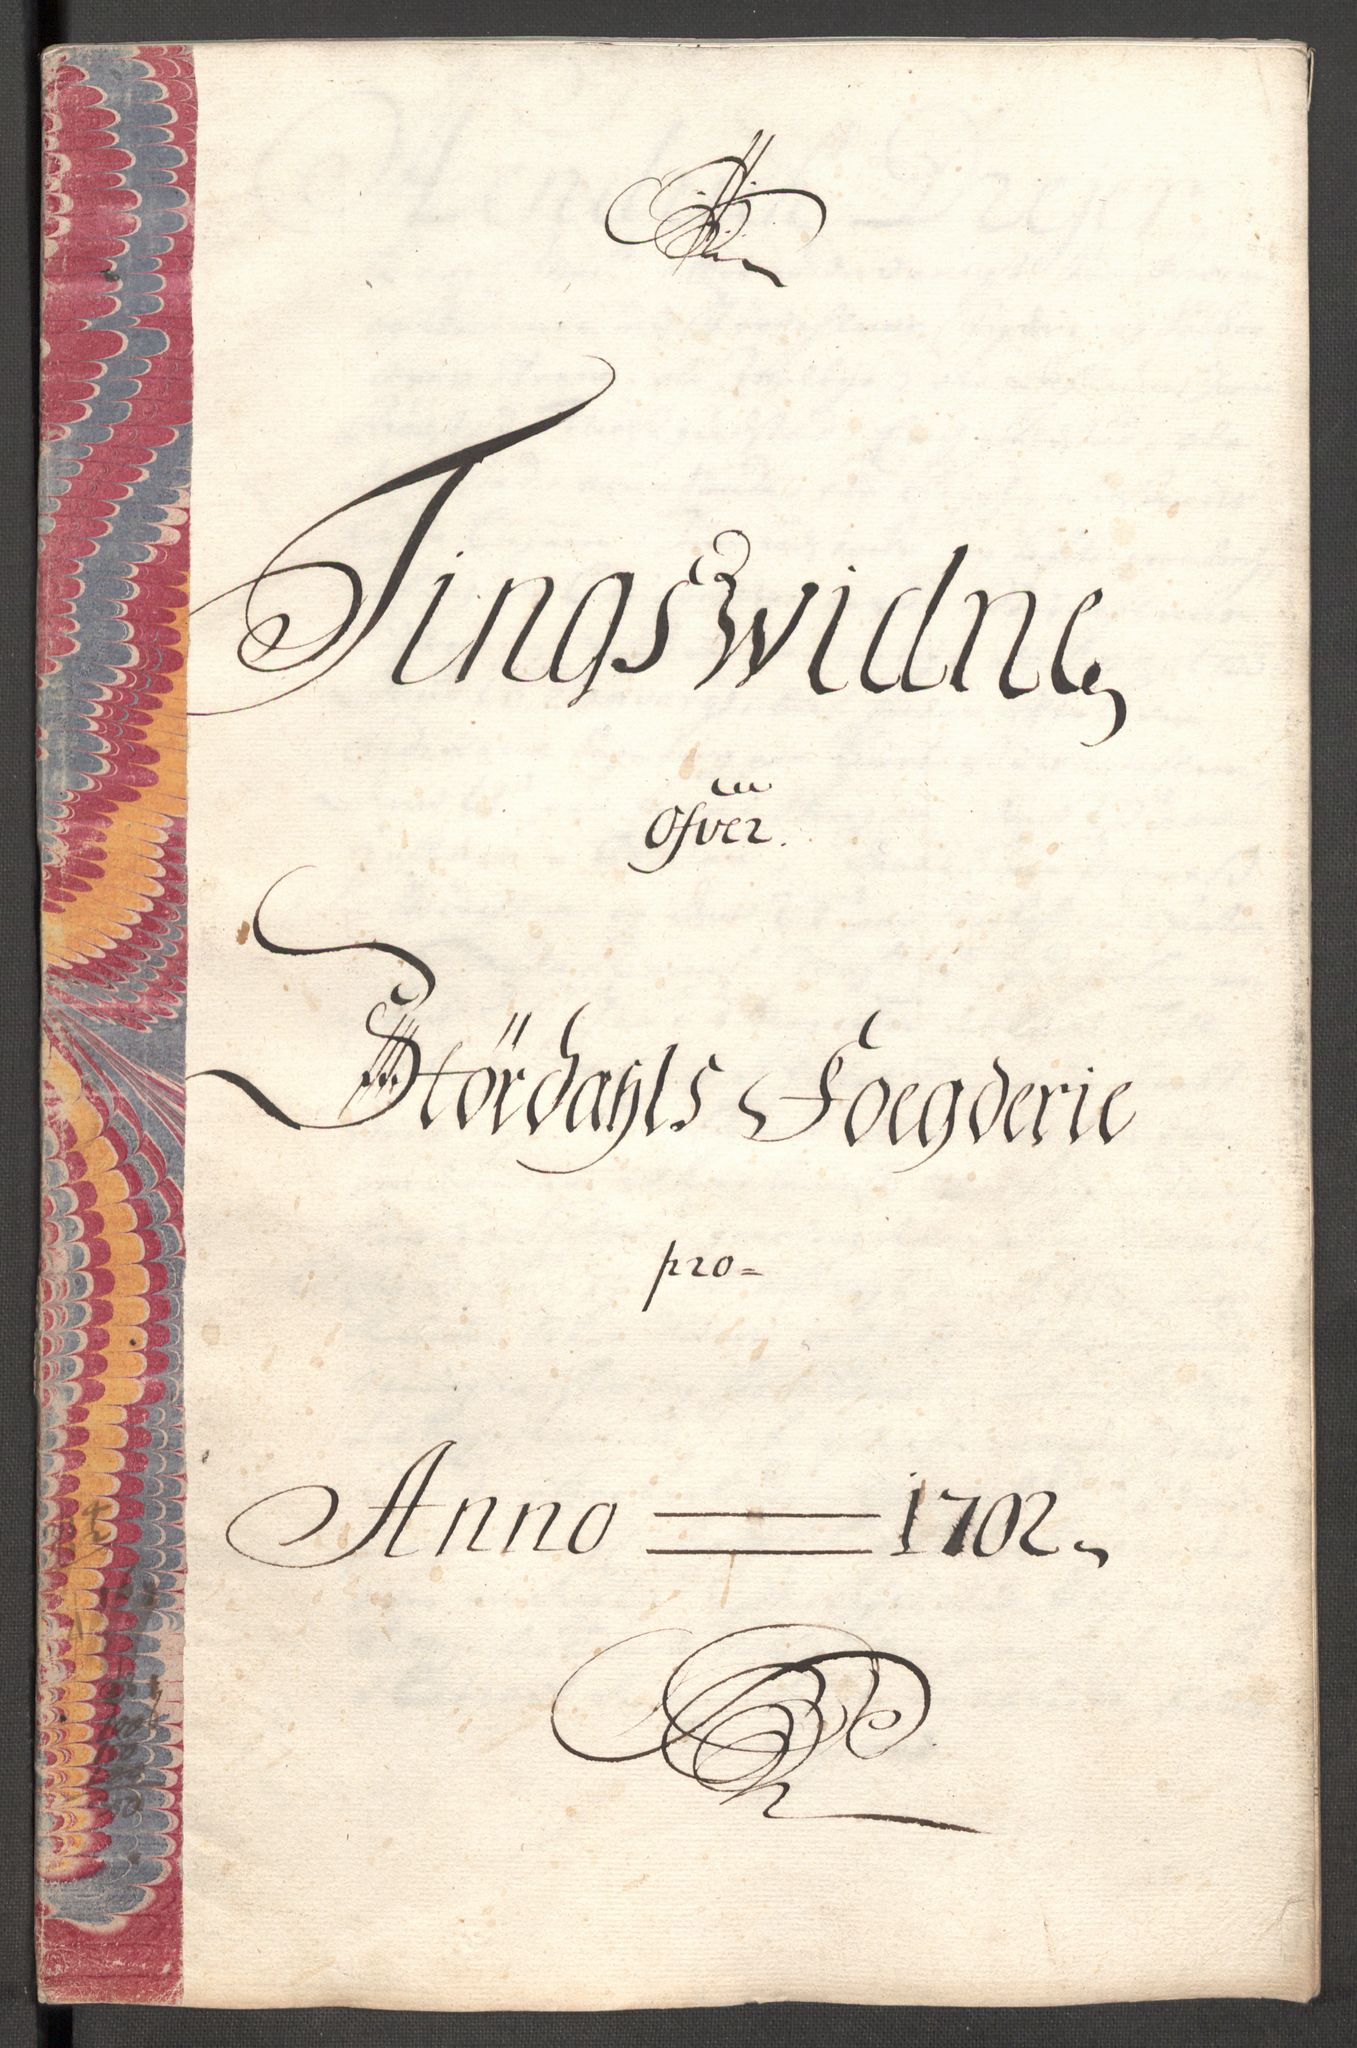 Tingswidne
Ofver
Stördahls Foegderie
pro=
Anno = 1702